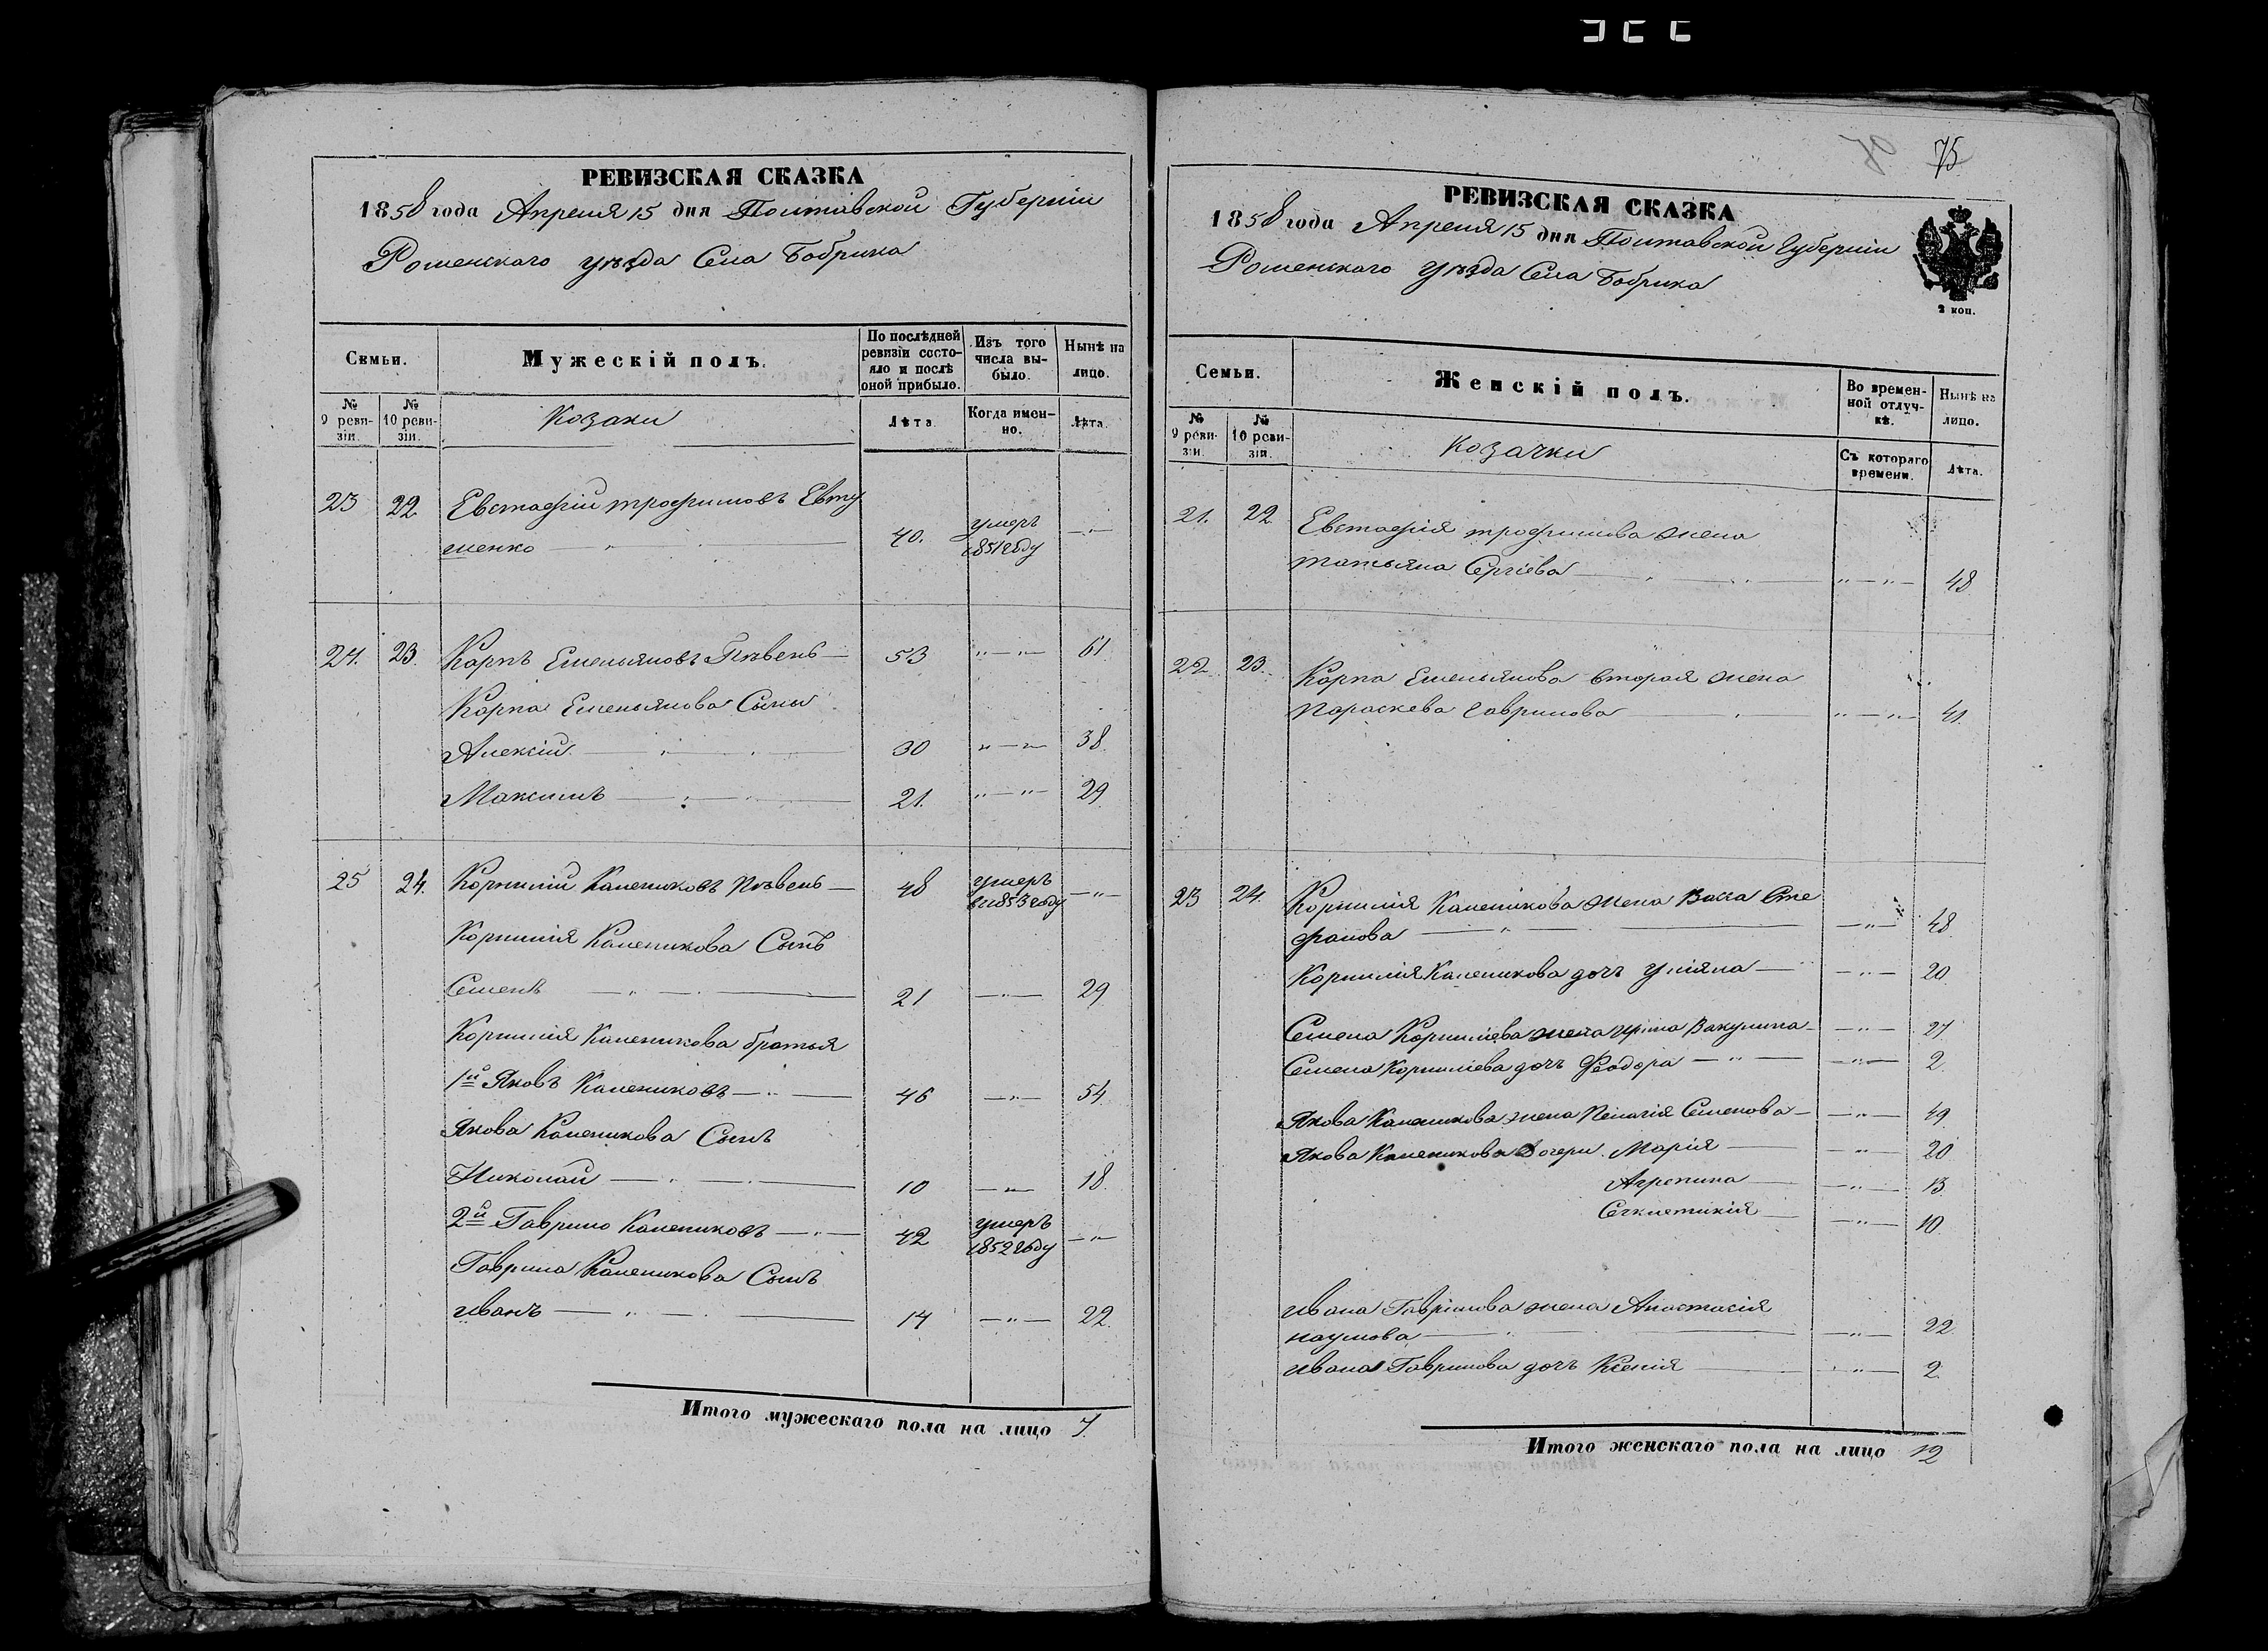 РЕВИЗСКАЯ СКАЗКА
1858 года Апреля 15 дня Полтавской Губерніи
Роменскаго уѣзда Села Бобрика
Семьи.
Мужескій полъ.
По послѣдней ревизіи состояло и послѣ оной прибыло.
Изъ того числа выбыло.
Нынѣ на лицо.
№ 9 ревизіи.
№ 10 ревизіи.
Козаки
Лѣта.
Когда именно.
Лѣта.
23 22 Евстафій трофимовъ Евту
шенко 40. умеръ 1851 году
24. 23. Карпъ Емельяновъ Пѣвень 53 61
Карпа Емельянова Сыны
Алексій 30 38
Максимъ 21. 29
25 24. Корнилій Калениковъ Пѣвень 48 умеръ в 1853 году
Корнилія Каленикова Сынъ
Семенъ 21 29
Корнилія Каленикова братья
1й Яковъ Калениковъ 46 54
Якова Каленикова Сынъ
Николай 10 18
2й Гаврило Калениковъ 42 умеръ 1852 году
Гаврила Каленикова Сынъ
иванъ 14 22
Итого мужескаго пола на лицо 7.
75
РЕВИЗСКАЯ СКАЗКА
1858 года Апреля 15 дня Полтавской Губерніи
Роменскаго уѣзда Села Бобрика
2 коп.
Семьи.
Женскій полъ.
Во временной отлучкѣ.
Нынѣ на лицо.
№ 9 ревизіи.
№ 10 ревизіи.
Козачки
Съ котораго времени.
Лѣта.
21. 22 Евстафія трофимова жена
татьяна Сергіева 48
22. 23. Карпа Емельянова вторая жена
Параскева Гаврилова 41
23 24. Корнилія Каленикова жена Васса Сте
фанова 48
Корнилія Каленикова дочь Уліяна 20
Семена Корниліева жена ирина Вакулина 27
Семена Корниліева дочь Феодора 2
Якова Каленикова жена Пелагія Семенова 49
Якова Каленикова дочери Марія 20
Агрепина 13
10
ивана Гаврилова жена Анастасія
наумова 22
ивана Гаврилова дочь Ксенія 2
Итого женскаго пола на лицо 12